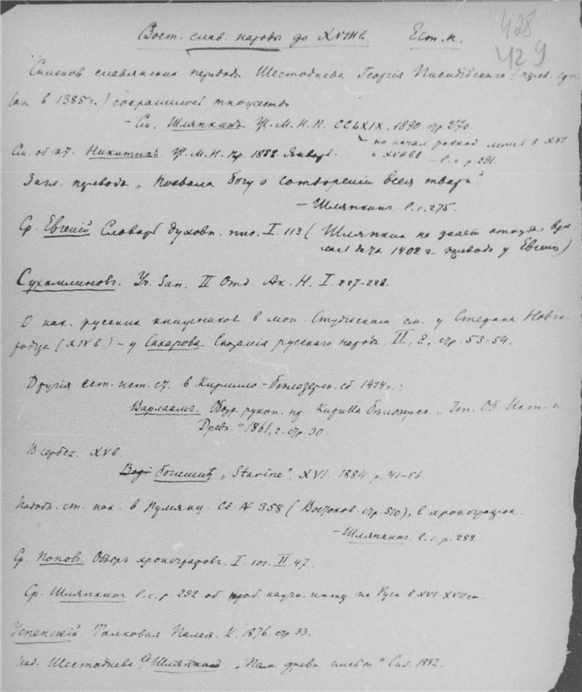 428
429
Вост. слав. народы до XVIII в. Ест. И.
Списков славянских перевода Шестоднева Георгія Писидійского (перев.
в 1385 г.) сохранилось множество
– См. Шляпкин Ж. М. Н. П. CCLXIX. 1890. стр 270.
См. об эт. Никитин Ж. М. Н. Пр. 1888 Январь
в XVI
и XVII в – l. c. p 291.
Загл. перевода „Похвала Богу о сотвореніи всея твари".
– Шляпкин l. c. 275.
Ср. Евгеній Словарь духовн. пис. I 113 (Шляпкин не дает
1402 г. перевода у Евгенія)
Сухомлинов. Уч. Зап. II Отд. Ак. Н. I. 227-228.
О нах. русских книжников в мон. Студійском см. у Стефана Новго-
родца (XIV в.) – у Сахарова Сказанія русского народа. II, 8, стр. 53-54.
Другія ест. ист. ст. в Кирилло-Белозерск. сб. 1424 г.:
Варлаам. Обозр. рукоп. пр. Кирилла Белозерск. „Чт. Об. Ист. и
Древ." 1861, 2. стр. 30.
В сербск. XV в.
„Starine". XVI. 1884. p. 41-56
Подобн. ст. нах. в Румянц. Сб. № 358 (Востоков. стр. 510), в хронографах.
– Шляпкин l. c. p. 288.
Ср. Попов. Обзор хронографов. I. 101. II. 47.
Ср. Шляпкин l. c. p. 292 об проб. научн. инт. на Руси в XVI XVII ст.
Успенскій Толковая Палея. К. 1876. стр. 33.
Изд. Шестоднева Шляпкин „Пам. древн. письм." Спб. 1882.